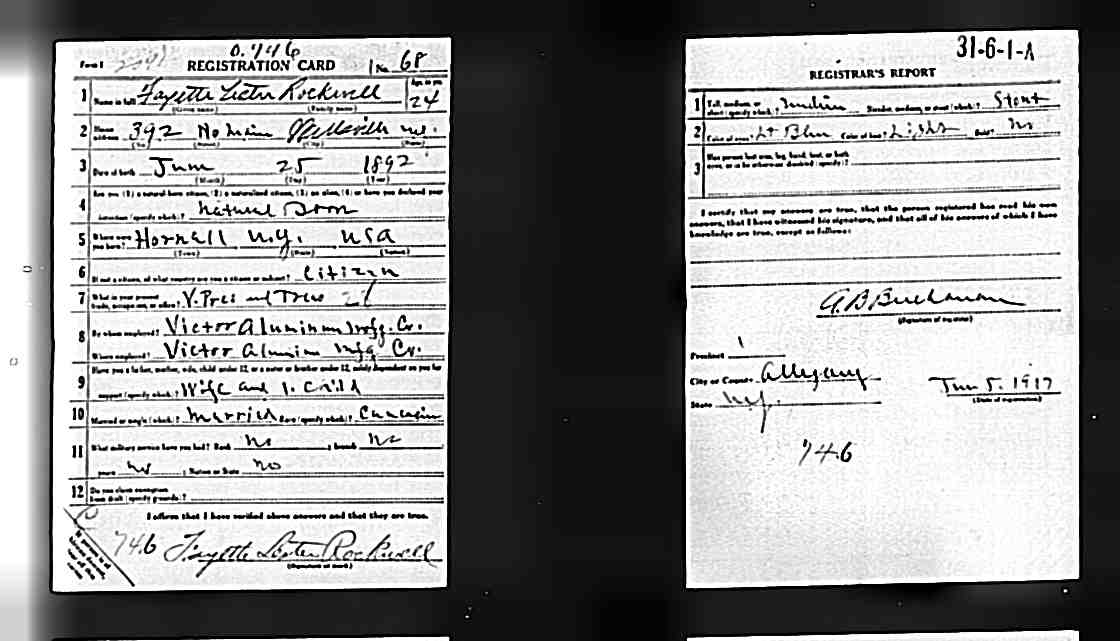 0.746
Form 1
REGISTRATION CARD
No. 68
1 Name in full Fayette Lester Rockwell
(Given name) (Family name)
Age, in yrs
24
2 Home address 392 No Main Wellsville N.Y.
(No.) (Street) (City) (State)
3 Date of birth June 25 1892
(Month) (Day) (Year)
Are you (1) a natural born citizen, (2) a naturalized citizen, (3) an alien, (4) or have you declared your
4
intention (specify which)? Natural Born
5 Where were you born? Hornell N.Y. USA
(Town) (State) (Nation)
6 If not a citizen, of what country are you a citizen or subject? Citizen
7 What is your present trade, occupation, or office? V. Pres and Treas 21
8 By whom employed? Victor Aluminum Mfg. Co.
Where employed? Victor Aluminum Mfg Co.
Have you a father, mother, wife, child under 12, or a sister or brother under 12, solely dependent on you for
9
support (specify which)? Wife and 1 child
10 Married or single (which)? Married Race (specify which)? Caucasian
11 What military service have you had? Rank No ; branch No
years No ; Nation or State No
12 Do you claim exemption from draft (specify grounds)?
I affirm that I have verified above answers and that they are true.
746 Fayette Lester Rockwell
(Signature or mark)
31-6-1-A
REGISTRAR'S REPORT
1 Tall, medium, or short (specify which)? Medium Slender, medium, or stout (which)? Stout
2 Color of eyes? Lt Blue Color of hair? Light Bald? No
3 Has person lost arm, leg, hand, foot, or both eyes, or is he otherwise disabled (specify)?
I certify that my answers are true, that the person registered has read his own
answers, that I have witnessed his signature, and that all of his answers of which I have
knowledge are true, except as follows:
G. B. Buchanan
(Signature of registrar)
Precinct 1
City or County Allegany
State N.Y.
June 5. 1917
(Date of registration)
746